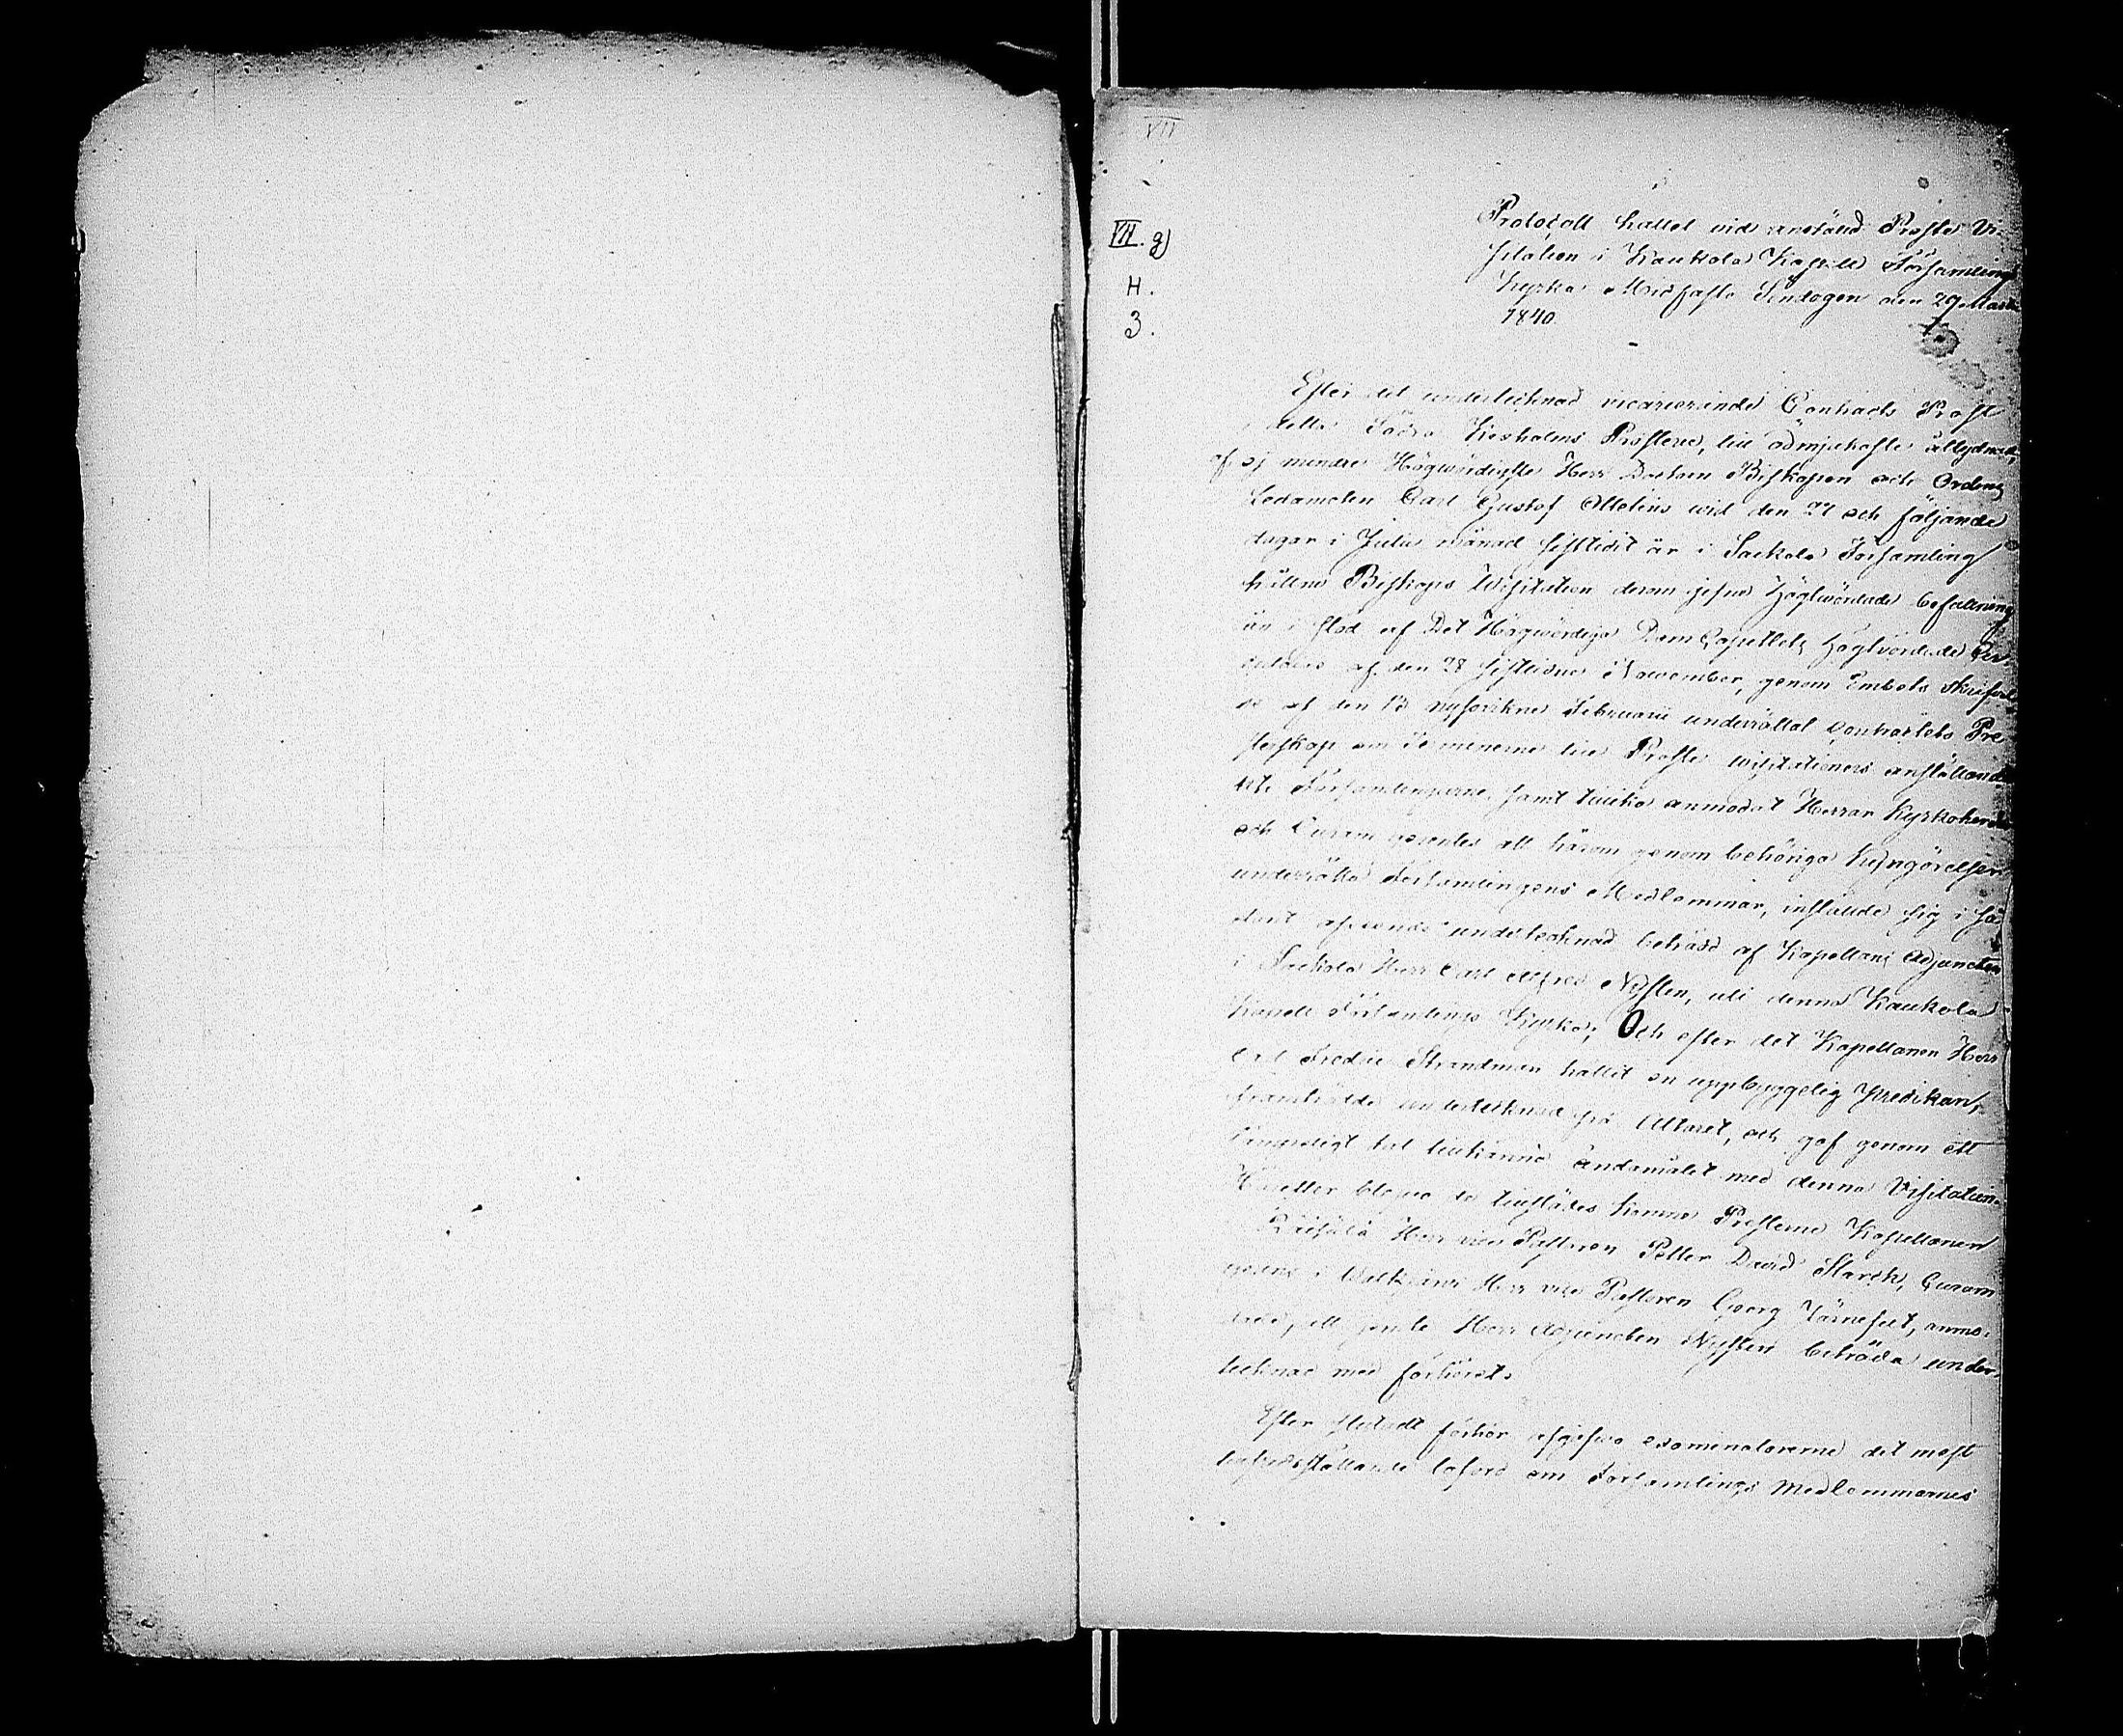 VII
VII. g)
H.
3.
Protocoll hållet vid anstäld Proste Vi-
sitation i Kaukola Kapell Församlings
Kyrka Midfasto Söndagen den 29 Martii
1840.
Efter det undertecknad vicarierande Contracts Prost
i detta Södra Kexholms Prosteri, till ödmjukaste åtlydnad,
af ej mindre Högwördigste Herr Doctorn Biskopen och Ordens
Ledamoten Carl Gustof Ottelins wid den 27 och följande
dagar i Julii månad sistledit år i Sackola Församling
hållne Biskops Visitation derom gifne Höglvördade befallning
än i stöd af Det Högwördiga Dom Capitlets Höglvördade Cir-
culaire af den 28 sistledne November, genom Embets skrifvel-
se af den 13 nysvikne Februarii underrättat Contractets Pre-
sterskap om Terminerne till Proste visitationers anställande
uti Församlingarne, samt tillika anmodat Herrar Kyrkoherdar
och Curam gerentes att härom genom behöriga Kungörelser
underrätta Församlingens Medlemmar, instälde sig i så-
dant afseende undertecknad beträdd af Kapellans Adjuncten
i Sackola Herr Carl Alfred Nysten, uti denna Kaukola
Kapell Församlings Kyrka; Och efter det Kapellanen Herr
Carl Fredric Strandman hållit en uppbyggelig predikan,
framträdde undertecknad för Altaret, och gaf genom ett
lämpeligt tal tillkänna ändamålet med denna Visitation.
Härefter blefvo de tillstädes komne Presterne Kapellanen
i Räisälä Herr vice Pastoren Petter David Starck, Curam
gerens i Walkjärvi Herr vice Pastoren Georg Järnefelt, anmo-
dade, att jemte Herr Adjuncten Nysten biträda under-
tecknad med förhöret.
Efter slutadt förhör afgåfvo examinatorerne det mest
tillfredsställande loford om Församlings Medlemmarnes